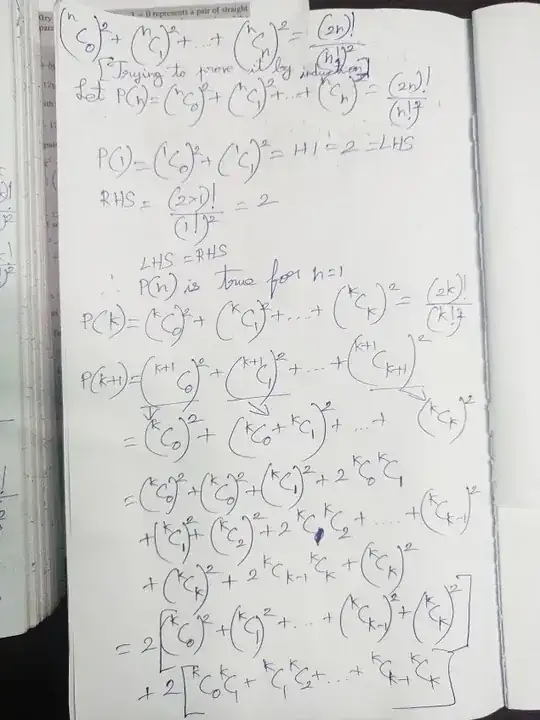 = 0 represents a pair of straight
(ⁿC₀)² + (ⁿC₁)² + ... + (ⁿCₙ)² = (2n)!/(n!)²
[Trying to prove it by induction]
Let P(n) = (ⁿC₀)² + (ⁿC₁)² + ... + (ⁿCₙ)² = (2n)!/(n!)²
P(1) = (¹C₀)² + (¹C₁)² = 1+1 = 2 = LHS
RHS = (2×1)!/(1!)² = 2
LHS = RHS
∴ P(n) is true for n=1
P(k) = (ᵏC₀)² + (ᵏC₁)² + ... + (ᵏCₖ)² = (2k)!/(k!)²
P(k+1) = (ᵏ⁺¹C₀)² + (ᵏ⁺¹C₁)² + ... + (ᵏ⁺¹Cₖ₊₁)²
= (ᵏC₀)² + (ᵏC₀ + ᵏC₁)² + ... + (ᵏCₖ)²
= (ᵏC₀)² + (ᵏC₀)² + (ᵏC₁)² + 2 ᵏC₀ ᵏC₁
+ (ᵏC₁)² + (ᵏC₂)² + 2 ᵏC₁ ᵏC₂ + .... + (ᵏCₖ₋₁)²
+ (ᵏCₖ)² + 2 ᵏCₖ₋₁ ᵏCₖ + (ᵏCₖ)²
= 2[(ᵏC₀)² + (ᵏC₁)² + ... + (ᵏCₖ₋₁)² + (ᵏCₖ)²]
+ 2[ᵏC₀ ᵏC₁ + ᵏC₁ ᵏC₂ + ... + ᵏCₖ₋₁ ᵏCₖ]